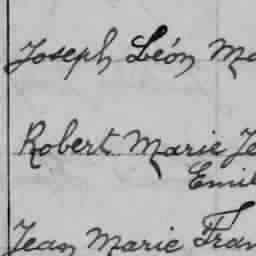 Joseph Léon Ma
Robert Marie Je
Emil
Jean Marie Fran